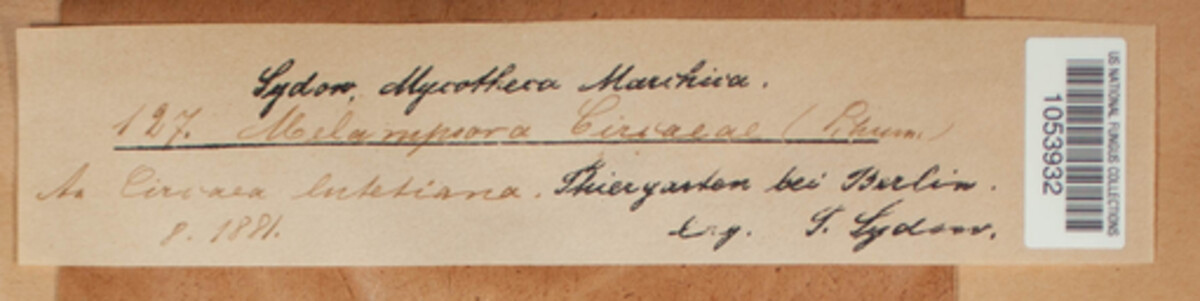 Sydow, Mycotheca Marchica.
127. Melampsora Circaeae (Schum.)
An Circaea lutetiana. Thiergarten bei Berlin.
8. 1881.
Leg. P. Sydow.
US NATIONAL FUNGUS COLLECTIONS
1053932